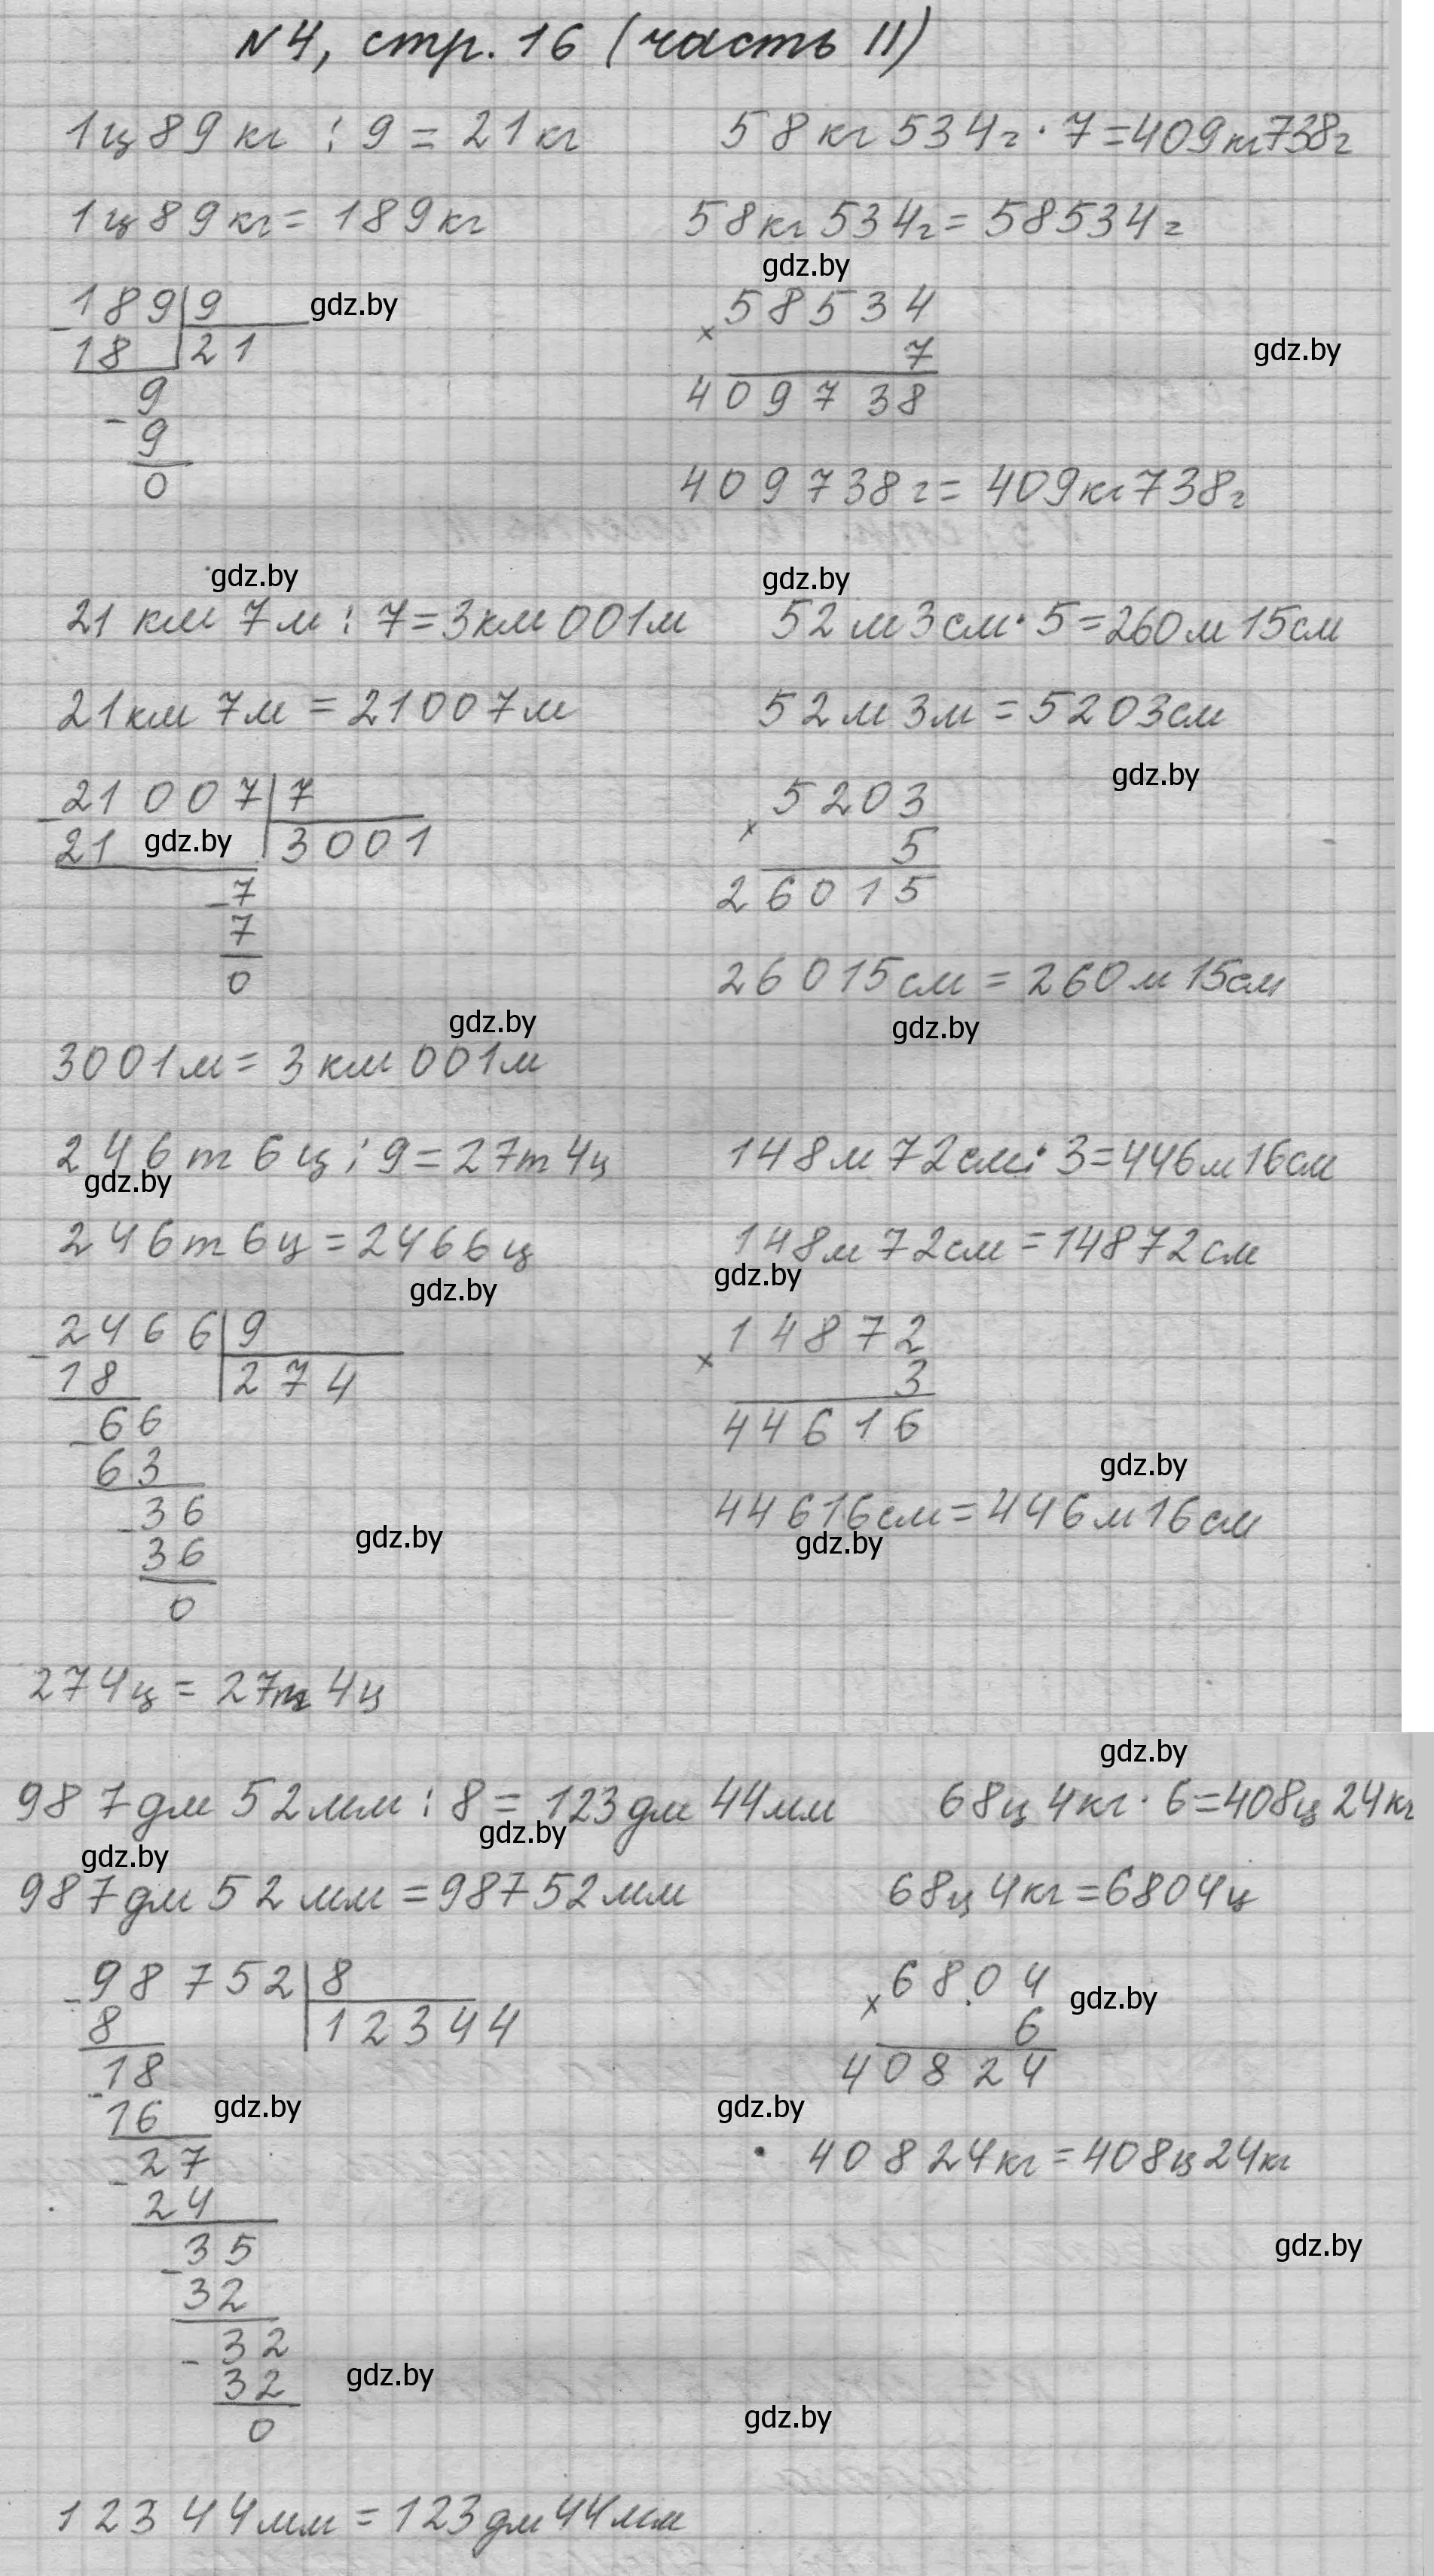 N4, стр. 16 (часть II)
1ц 89 кг : 9 = 21 кг
1ц 89 кг = 189 кг
gdz.by
189 9
18 21
9
9
0
58 кг 534 г · 7 = 409 кг 738 г
58 кг 534 г = 58534 г
gdz.by
× 58534
7
gdz.by
409738
409738 г = 409 кг 738 г
gdz.by
21 км 7 м : 7 = 3 км 001 м
21 км 7 м = 21007 м
21007 7
21 gdz.by 3001
7
7
0
gdz.by
3001 м = 3 км 001 м
gdz.by
52 м 3 см · 5 = 260 м 15 см
52 м 3 м = 5203 см
gdz.by
× 5203
5
26015
26015 см = 260 м 15 см
gdz.by
246 т 6 ц : 9 = 27 т 4 ц
gdz.by
246 т 6 ц = 2466 ц
gdz.by
2466 9
18 274
66
63
36
36
gdz.by
0
274 ц = 27 т 4 ц
148 м 72 см · 3 = 446 м 16 см
148 м 72 см = 14872 см
gdz.by
× 14872
3
44616
gdz.by
44616 см = 446 м 16 см
gdz.by
gdz.by
987 дм 52 мм : 8 = 123 дм 44 мм
gdz.by
gdz.by
987 дм 52 мм = 98752 мм
98752 8
8 12344
18
16
gdz.by
27
24
35
32
32
32
gdz.by
0
12344 мм = 123 дм 44 мм
68 ц 4 кг · 6 = 408 ц 24 кг
68 ц 4 кг = 6804 ц
× 6804
gdz.by
6
40824
gdz.by
40824 кг = 408 ц 24 кг
gdz.by
gdz.by